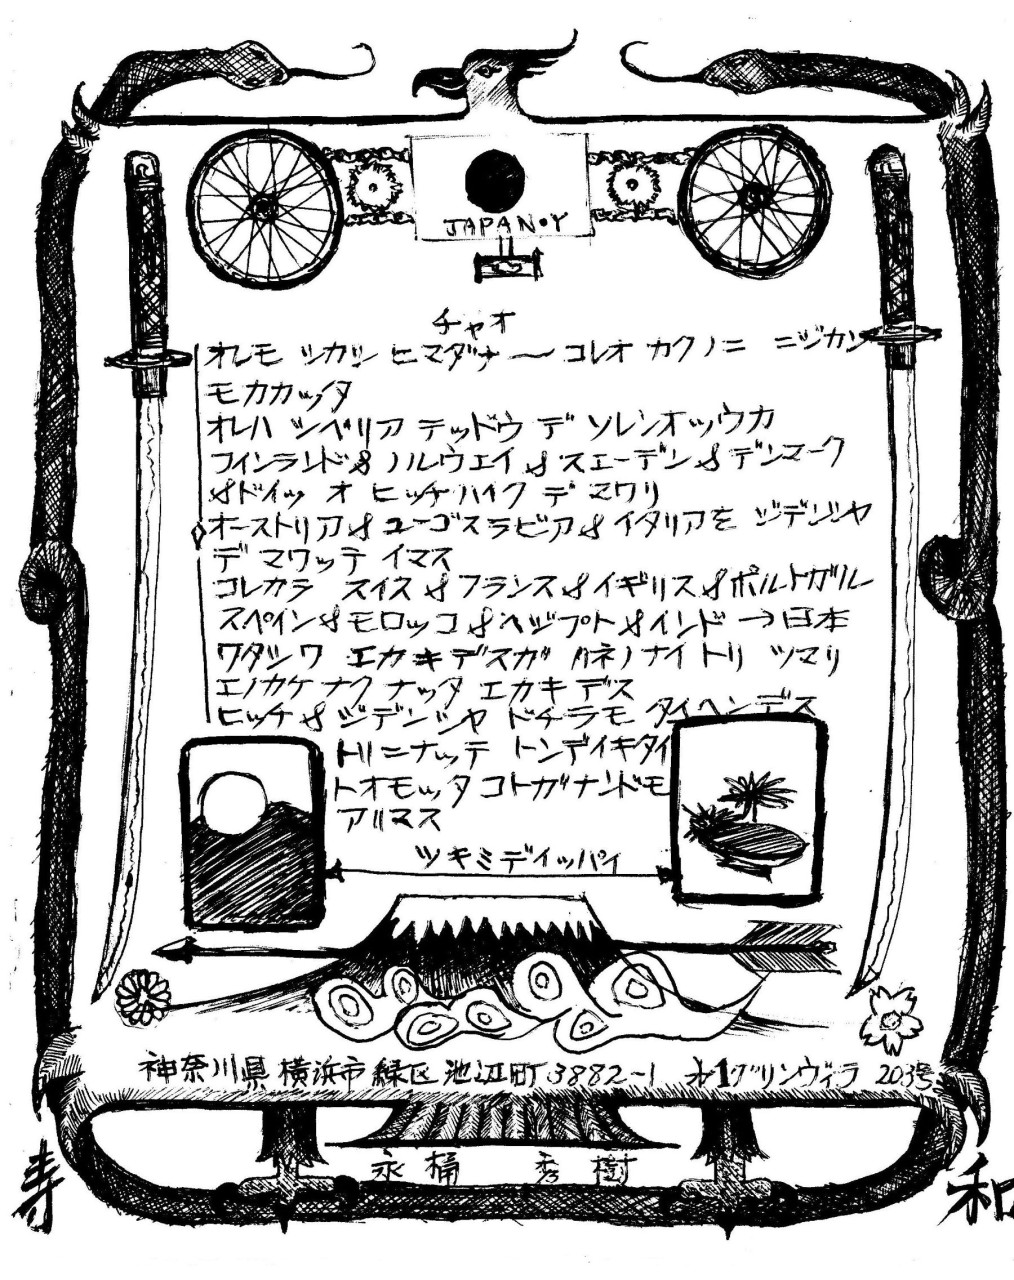 JAPAN・Y
チャオ
オレモ シカシ ヒマダナ〜 コレオ カクノニ ニジカン
モカカッタ
オレハ シベリア テッドウ デ ソレンオツウカ
フィンランド & ノルウエイ & スエーデン & デンマーク
& ドイツ オ ヒッチハイク デ マワリ
オーストリア & ユーゴスラビア & イタリアを ジデンシャ
デ マワッテ イマス
コレカラ スイス & フランス & イギリス & ポルトガル
スペイン & モロッコ & ヘジプト & インド → 日本
ワタシワ エカキデスガ カネノナイ トリ ツマリ
エノカケナク ナッタ エカキ デス
ヒッチ & ジデンシャ ドチラモ タイヘンデス
トリニナッテ トンデイキタイ
トオモッタ コトガナンドモ
アリマス
ツキミデイッパイ
神奈川県 横浜市 緑区 池辺町 3882〜1 オ1グリンヴィラ 203号
永桶 秀樹
寿
和